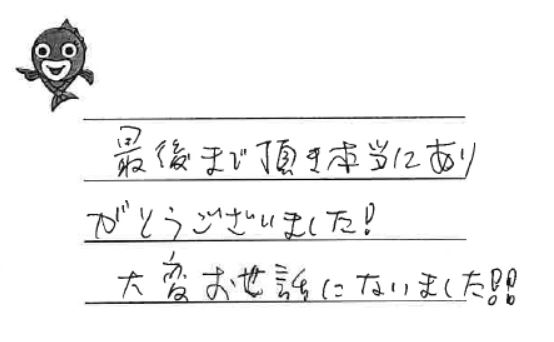 最後まで頂き本当にあり
がとうございました!
大変お世話にないました!!